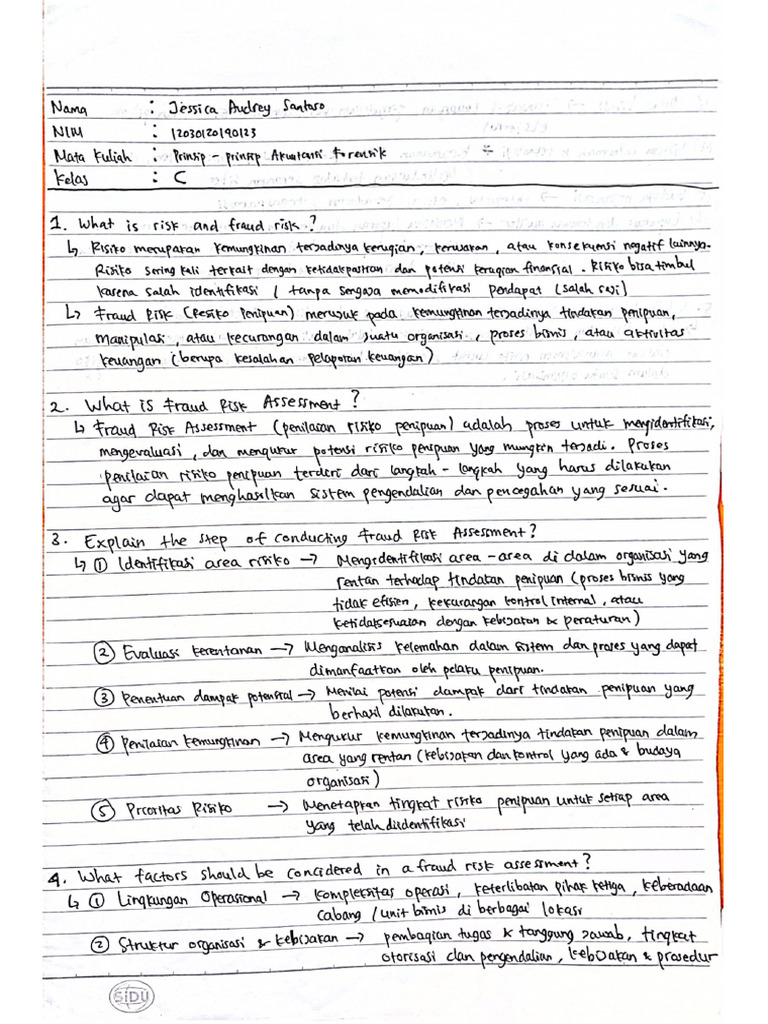 Nama : Jessica Audrey Santoso
NIM : 12030120190123
Mata Kuliah : Prinsip - prinsip Akuntansi Forensik
Kelas : C
1. What is risk and fraud risk ?
↳ Risiko merupakan kemungkinan terjadinya kerugian, kerusakan, atau konsekuensi negatif lainnya.
Risiko sering kali terkait dengan ketidakpastian dan potensi kerugian finansial. Risiko bisa timbul
karena salah identifikasi / tanpa sengaja memodifikasi pendapat (salah saji)
↳ Fraud Risk (Resiko Penipuan) merujuk pada kemungkinan terjadinya tindakan penipuan,
manipulasi, atau kecurangan dalam suatu organisasi, proses bisnis, atau aktivitas
keuangan (berupa kesalahan pelaporan keuangan)
2. What is Fraud Risk Assessment ?
↳ Fraud Risk Assessment (penilaian risiko penipuan) adalah proses untuk mengidentifikasi,
mengevaluasi, dan mengukur potensi risiko penipuan yang mungkin terjadi. Proses
penilaian risiko penipuan terdiri dari langkah - langkah yang harus dilakukan
agar dapat menghasilkan sistem pengendalian dan pencegahan yang sesuai.
3. Explain the step of conducting Fraud Risk Assessment ?
↳ ① Identifikasi area risiko → Mengidentifikasi area - area di dalam organisasi yang
rentan terhadap tindakan penipuan (proses bisnis yang
tidak efisien, kekurangan kontrol internal, atau
ketidaksesuaian dengan kebijakan & peraturan)
② Evaluasi kerentanan → Menganalisis kelemahan dalam sistem dan proses yang dapat
dimanfaatkan oleh pelaku penipuan.
③ Penentuan dampak potensial → Menilai potensi dampak dari tindakan penipuan yang
berhasil dilakukan.
④ Penilaian kemungkinan → Mengukur kemungkinan terjadinya tindakan penipuan dalam
area yang rentan (kebijakan dan kontrol yang ada & budaya
organisasi)
⑤ Prioritas Risiko → Menetapkan tingkat risiko penipuan untuk setiap area
yang telah diidentifikasi
4. What factors should be concidered in a fraud risk assessment ?
↳ ① Lingkungan Operasional → Kompleksitas operasi, keterlibatan pihak ketiga, keberadaan
cabang / unit bisnis di berbagai lokasi
② Struktur organisasi & kebijakan → pembagian tugas & tanggung jawab, tingkat
otorisasi dan pengendalian, kebijakan & prosedur
SIDU